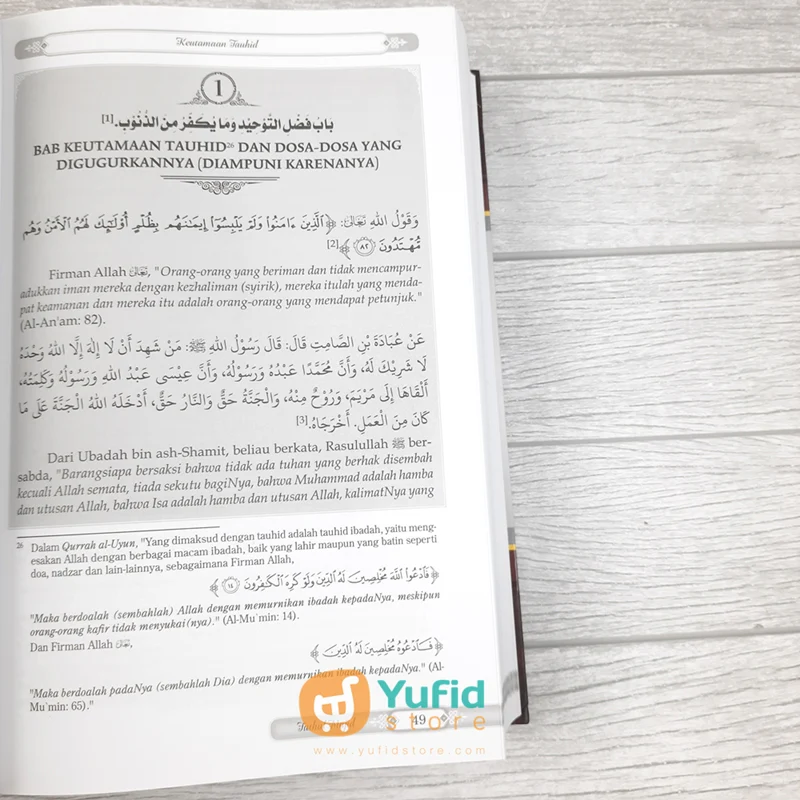 Keutamaan Tauhid
1
بَابُ فَضْلِ التَّوْحِيْدِ وَمَا يُكَفِّرُ مِنَ الذُّنُوْبِ. [1]
BAB KEUTAMAAN TAUHID26 DAN DOSA-DOSA YANG
DIGUGURKANNYA (DIAMPUNI KARENANYA)
وَقَوْلُ اللهِ تَعَالَى: ﴿ٱلَّذِينَ ءَامَنُوا۟ وَلَمْ يَلْبِسُوٓا۟ إِيمَـٰنَهُم بِظُلْمٍ أُو۟لَـٰٓئِكَ لَهُمُ ٱلْأَمْنُ وَهُم
مُّهْتَدُونَ ٨٢﴾ [2]
Firman Allah تَعَالَى, "Orang-orang yang beriman dan tidak mencampur-
adukkan iman mereka dengan kezhaliman (syirik), mereka itulah yang menda-
pat keamanan dan mereka itu adalah orang-orang yang mendapat petunjuk."
(Al-An'am: 82).
عَنْ عُبَادَةَ بْنِ الصَّامِتِ قَالَ: قَالَ رَسُوْلُ اللهِ ﷺ: مَنْ شَهِدَ أَنْ لَا إِلٰهَ إِلَّا اللهُ وَحْدَهُ
لَا شَرِيْكَ لَهُ، وَأَنَّ مُحَمَّدًا عَبْدُهُ وَرَسُوْلُهُ، وَأَنَّ عِيْسَى عَبْدُ اللهِ وَرَسُوْلُهُ وَكَلِمَتُهُ،
أَلْقَاهَا إِلَى مَرْيَمَ، وَرُوْحٌ مِنْهُ، وَالْجَنَّةُ حَقٌّ وَالنَّارُ حَقٌّ، أَدْخَلَهُ اللهُ الْجَنَّةَ عَلَى مَا
كَانَ مِنَ الْعَمَلِ. أَخْرَجَاهُ. [3]
Dari Ubadah bin ash-Shamit, beliau berkata, Rasulullah ﷺ ber-
sabda, "Barangsiapa bersaksi bahwa tidak ada tuhan yang berhak disembah
kecuali Allah semata, tiada sekutu bagiNya, bahwa Muhammad adalah hamba
dan utusan Allah, bahwa Isa adalah hamba dan utusan Allah, kalimatNya yang
26 Dalam Qurrah al-Uyun, "Yang dimaksud dengan tauhid adalah tauhid ibadah, yaitu meng-
esakan Allah dengan berbagai macam ibadah, baik yang lahir maupun yang batin seperti
doa, nadzar dan lain-lainnya, sebagaimana Firman Allah,
﴿فَٱدْعُوا۟ ٱللَّهَ مُخْلِصِينَ لَهُ ٱلدِّينَ وَلَوْ كَرِهَ ٱلْكَـٰفِرُونَ ١٤﴾
"Maka berdoalah (sembahlah) Allah dengan memurnikan ibadah kepadaNya, meskipun
orang-orang kafir tidak menyukai(nya)." (Al-Mu`min: 14).
Dan Firman Allah تَعَالَى,
﴿فَٱدْعُوهُ مُخْلِصِينَ لَهُ ٱلدِّينَ﴾
"Maka berdoalah padaNya (sembahlah Dia) dengan memurnikan ibadah kepadaNya." (Al-
Mu`min: 65)."
49
Yufid
store
www.yufidstore.com